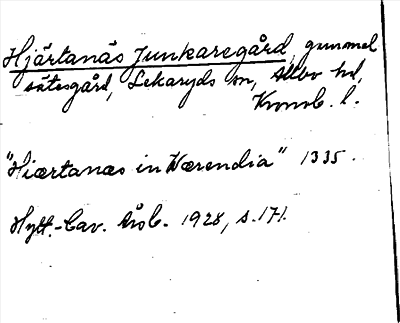 Hjärtanäs Junkaregård, gammal
sätesgård, Lekaryds sn, Allbo hd,
Kronob. l.
"Hiærtanæs in Wærendia" 1335.
Hylt.-Cav. Årsb. 1928, s. 171.